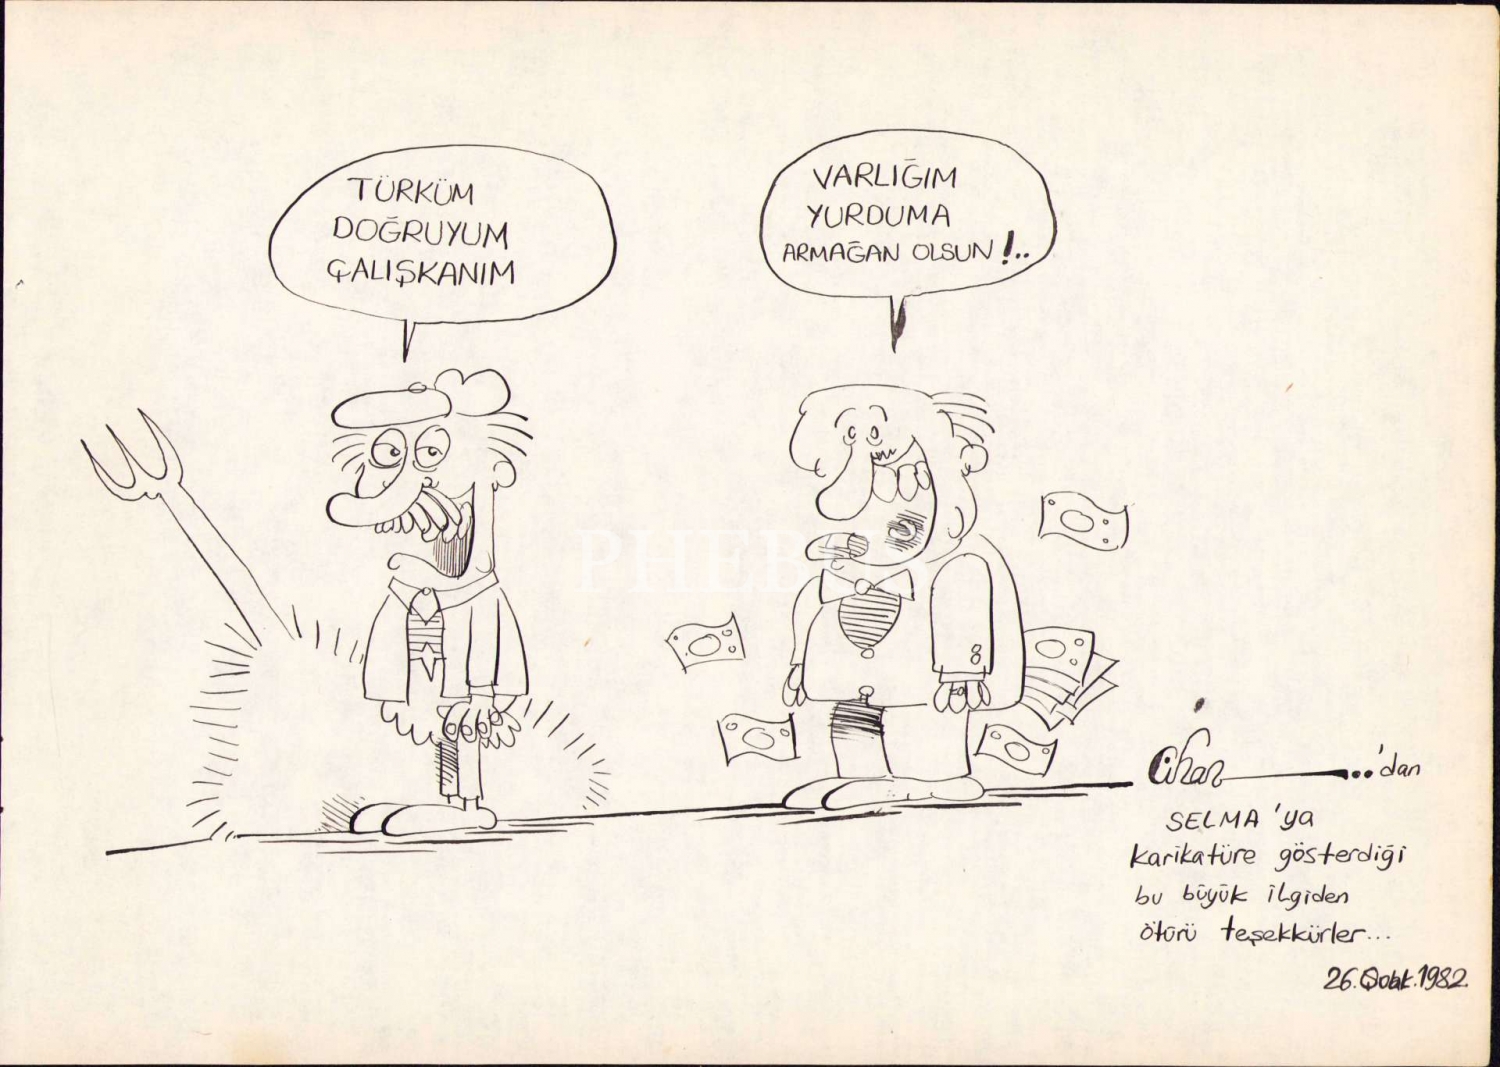 TÜRKÜM
DOĞRUYUM
ÇALIŞKANIM
VARLIĞIM
YURDUMA
ARMAĞAN OLSUN !..
PHEBUS
Cihan ..'dan
SELMA 'ya
karikatüre gösterdiği
bu büyük ilgiden
ötürü teşekkürler...
26.Şubat.1982.